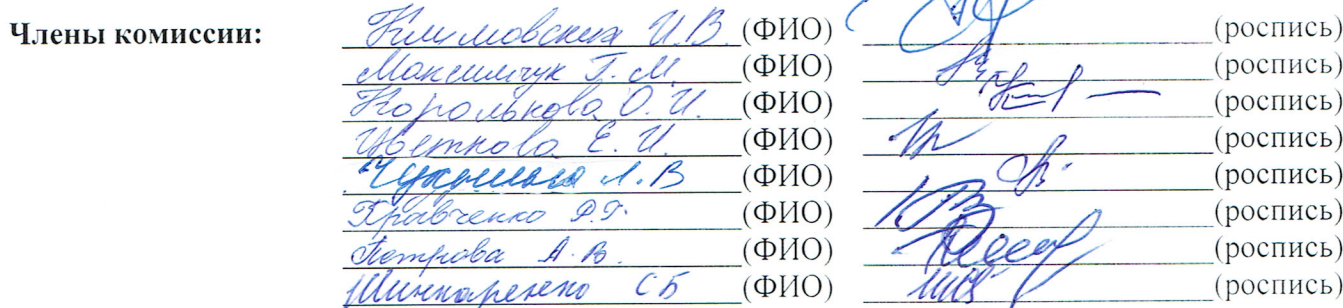 Члены комиссии: Климовских И.В. (ФИО) (роспись)
Максимчук Т.М. (ФИО) (роспись)
Королькова О.И. (ФИО) (роспись)
Цветкова Е.И. (ФИО) (роспись)
Л.В (ФИО) (роспись)
Кравченко Р.Г. (ФИО) (роспись)
Петрова А.В. (ФИО) (роспись)
Шинкаренко СБ (ФИО) (роспись)